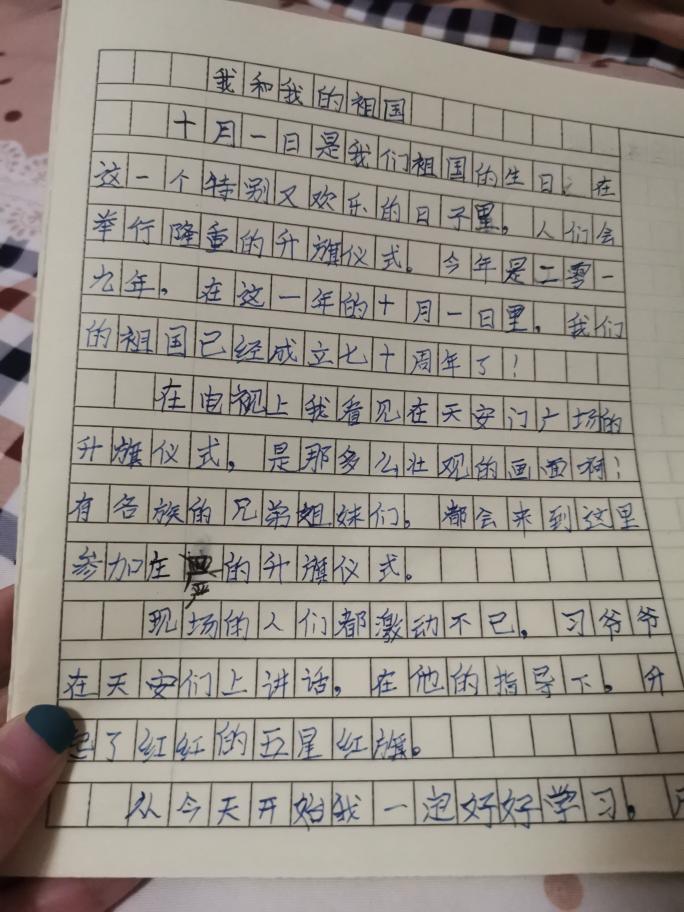 我和我的祖国
十月一日是我们祖国的生日。在
这一个特别又欢乐的日子里，人们会
举行隆重的升旗仪式。今年是二零一
九年，在这一年的十月一日里，我们
的祖国已经成立七十周年了！
在电视上我看见在天安门广场的
升旗仪式，是那多么壮观的画面啊！
有各族的兄弟姐妹们，都会来到这里
参加庄严的升旗仪式。
现场的人们都激动不已，习爷爷
在天安们上讲话，在他的指导下，升
起了红红的五星红旗。
从今天开始我一定好好学习，